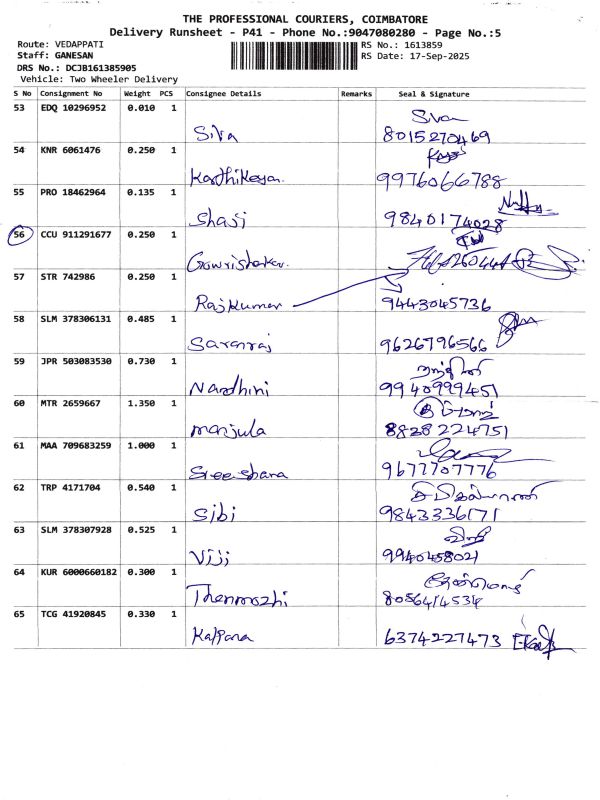 THE PROFESSIONAL COURIERS, COIMBATORE
Delivery Runsheet - P41 - Phone No.:9047080280 - Page No.:5
Route: VEDAPPATI RS No.: 1613859
Staff: GANESAN RS Date: 17-Sep-2025
DRS No.: DCJB161385905
Vehicle: Two Wheeler Delivery
S No Consignment No Weight PCS Consignee Details Remarks Seal & Signature
53 EDQ 10296952 0.010 1
Siva
Siva 8015270469
54 KNR 6061476 0.250 1
Karthikeyan 9976066788
55 PRO 18462964 0.135 1
Shasi 9840174028
56 CCU 911291677 0.250 1
Gowrishankar
57 STR 742986 0.250 1
Rajkumar 9443045736
58 SLM 378306131 0.485 1
Saranraj 9626796566
59 JPR 503083530 0.730 1
நந்தினி
Nandhini 9940999451
60 MTR 2659667 1.350 1
manjula 8828224751
61 MAA 709683259 1.000 1
Sreeshana 9677707776
62 TRP 4171704 0.540 1
Sibi 9843336171
63 SLM 378307928 0.525 1
Viji 9940458021
64 KUR 6000660182 0.300 1
தேன்மொழி
Thenmozhi 8056414534
65 TCG 41920845 0.330 1
Kalpana 6374227473